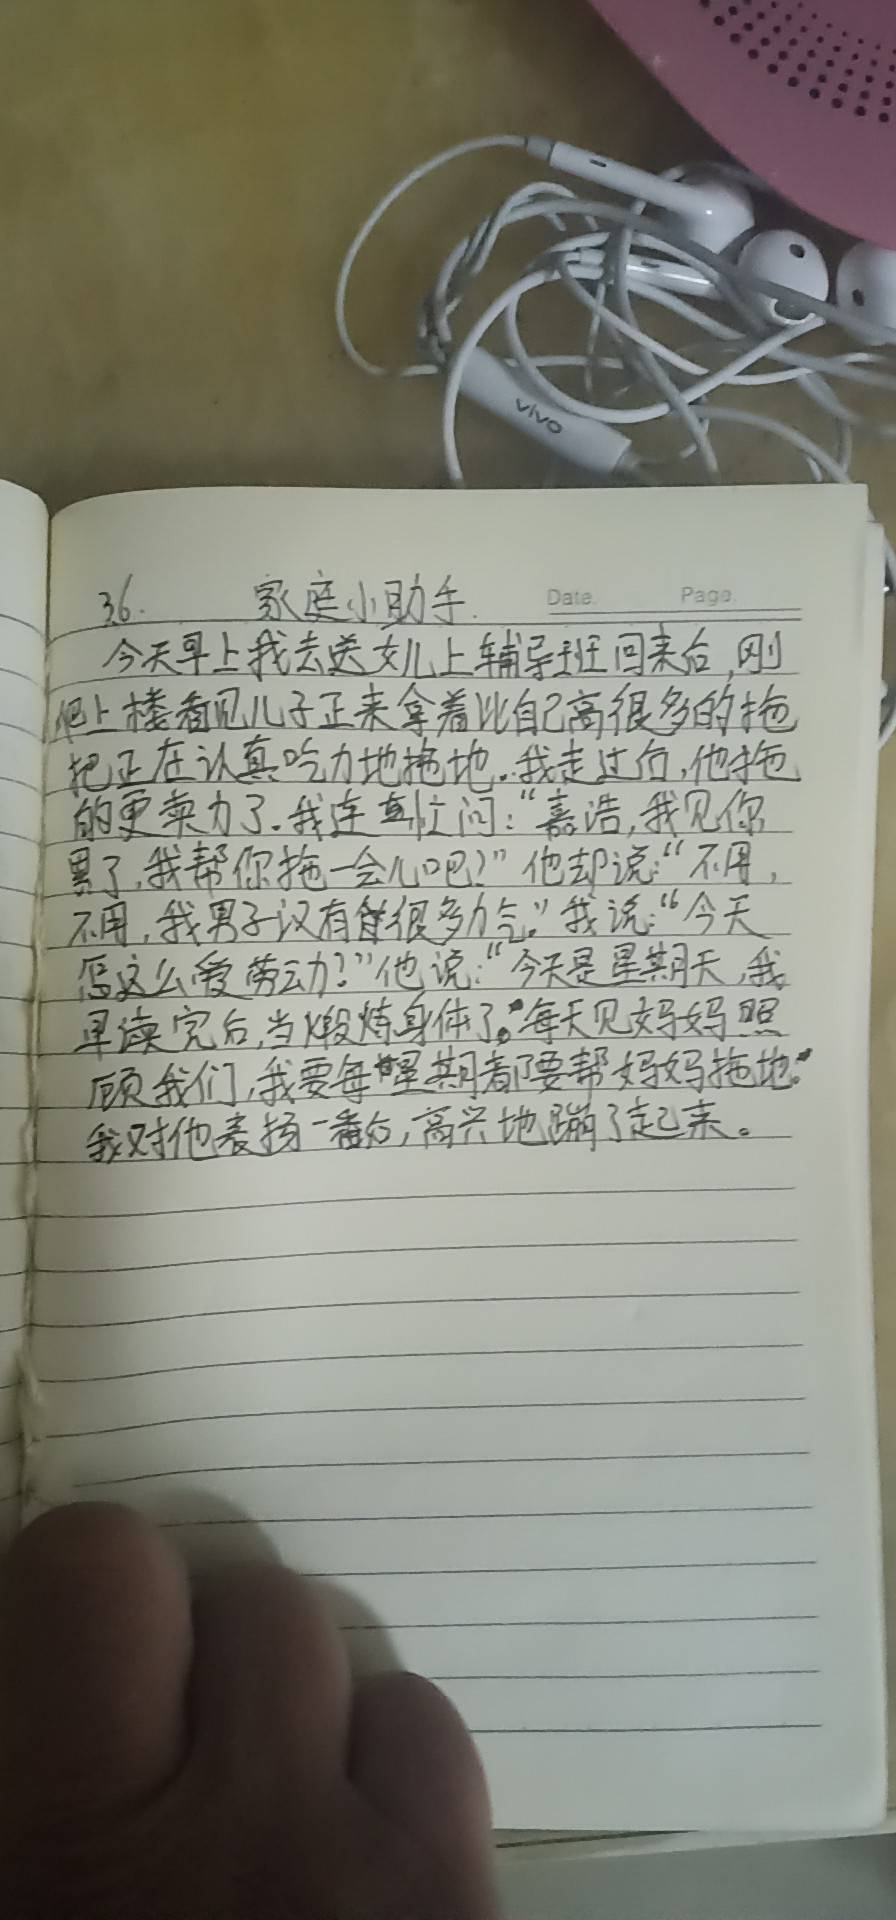 vivo
36. 家庭小助手. Date. Page.
今天早上我去送女儿上辅导班回来后,刚
爬上楼看见儿子正来拿着比自己高很多的拖
把正在认真吃力地拖地。我走过后,他拖
的更卖力了。我连忙问:“嘉浩,我见你
累了,我帮你拖一会儿吧?”他却说:“不用,
不用,我男子汉有很多力气。”我说:“今天
怎这么爱劳动?”他说:“今天是星期天,我
早读完后,当煅炼身体了。每天见妈妈照
顾我们,我要每星期都要帮妈妈拖地。”
我对他表扬一番后,高兴地蹦了起来。